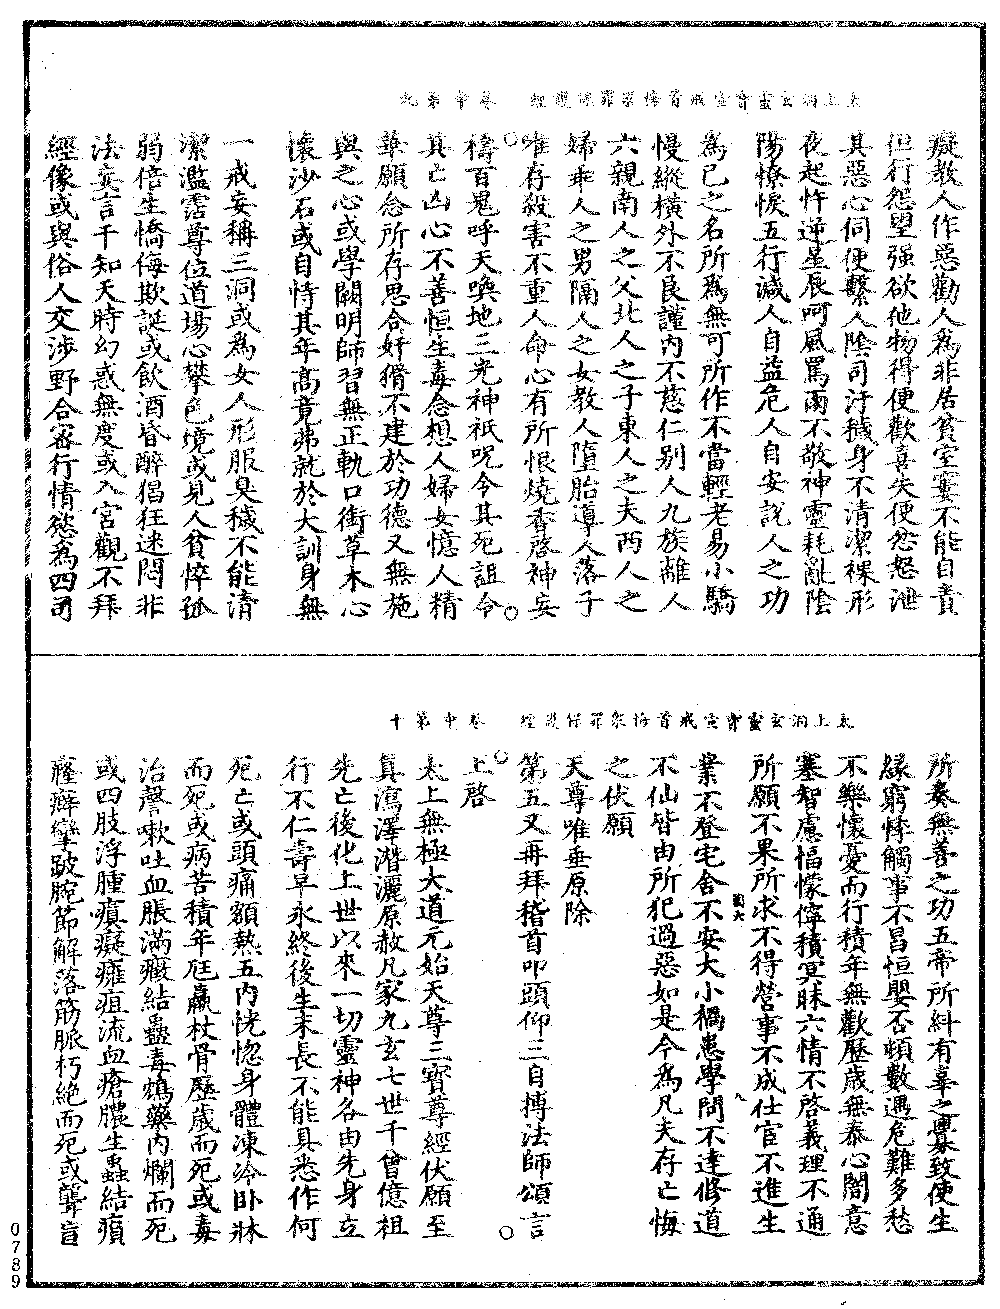 太上洞玄靈寶宣戒首悔眾罪保護經　卷中第九
癡教人作惡勸人為非居貧室寠不能自責
但行怨望強欲他物得便歡喜失便怨怒泄
其惡心伺便繫人陰司汙穢身不清潔裸形
夜起忤逆星辰呵風罵雨不敬神靈耗亂陰
陽憭悷五行減人自益危人自安說人之功
為已之名所為無可所作不當輕老易小驕
慢縱橫外不良謹內不慈仁別人九族離人
六親南人之父北人之子東人之夫西人之
婦乖人之男隔人之女教人墮胎導人落子
唯存殺害不重人命心有所恨燒香啓神妄
禱百鬼呼天喚地三光神祇呪令其死詛令
其亡凶心不善恒生毒念想人婦女憶人精
華願念所存思合奸猾不建於功德又無施
與之心或學闕明師習無正軌口銜草木心
懷沙石或自恃其年高竟弗就於大訓身無
一戒妄稱三洞或為女人形服臭穢不能清
潔濫霑尊位道場心攀色境或見人貧悴孤
弱倍生憍侮欺誕或飲酒昏醉猖狂迷悶非
法妄言干知天時幻惑無度或入宮觀不拜
經像或與俗人交涉野合密行情慾為四司
太上洞玄靈寶宣戒首悔眾罪保護經　卷中第十
所奏無善之功五帝所糾有辜之畧致使生
緣窮悴觸事不昌恒嬰否頓數遇危難多愁
不樂懷憂而行積年無歡歷歲無泰心闇意
塞智慮愊懞儜積冥昧六情不啓義理不通
所願不果所求不得營事不成仕官不進生
業不登宅舍不安大小禍患學問不達修道
不仙皆由所犯過惡如是今為凡夫存亡悔
之伏願
天尊唯垂原除
第五又再拜稽首叩頭仰三自摶法師頌言
上啓
太上無極大道元始天尊三寶尊經伏願至
真瀉澤潛灑原赦凡家九玄七世千曾億祖
先亡後化上世以來一切靈神各由先身立
行不仁壽早永終後生未長不能具悉作何
死亡或頭痛額熱五內恍惚身體凍冷卧牀
而死或病苦積年尫羸杖骨歷歲而死或毒
治聲嗽吐血脹滿癥結蠱毒鴆藥內爛而死
或四肢浮腫瘨癡癰疽流血瘡膿生蟲結瘨
癃癬攣跛腕節解落筋脈朽絕而死或聾盲
八
0789